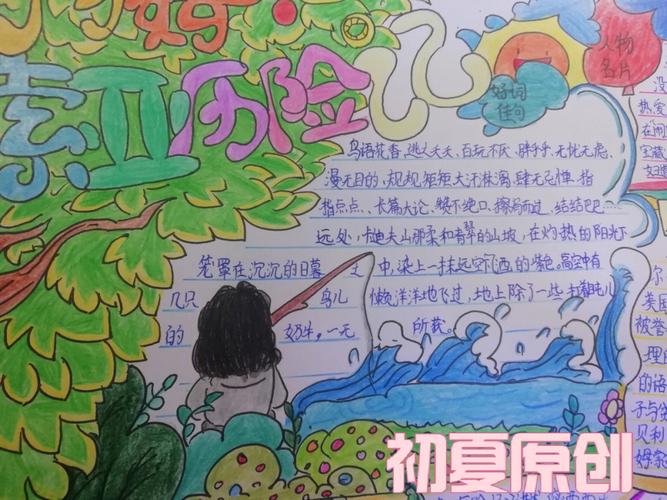 索亚历险记
人物
名片
好词
佳句
鸟语花香、逃之夭夭、百玩不厌、胖乎乎、无忧无虑、
漫无目的、规规矩矩、大汗淋漓、肆无忌惮、指
指点点、长篇大论、赞不绝口、擦肩而过、结结巴巴……
远处,卡迪夫山那柔和青翠的山坡,在灼热的阳光下
笼罩在沉沉的日暮之中,染上一抹远空下洒的紫色。高空中有
几只鸟儿懒洋洋地飞过,地上除了一些打着盹儿
的奶牛,一无所获。
没
热爱
在闹
宝藏
尔
装
被卷
理
的语
子与
贝利
姆索
初夏原创